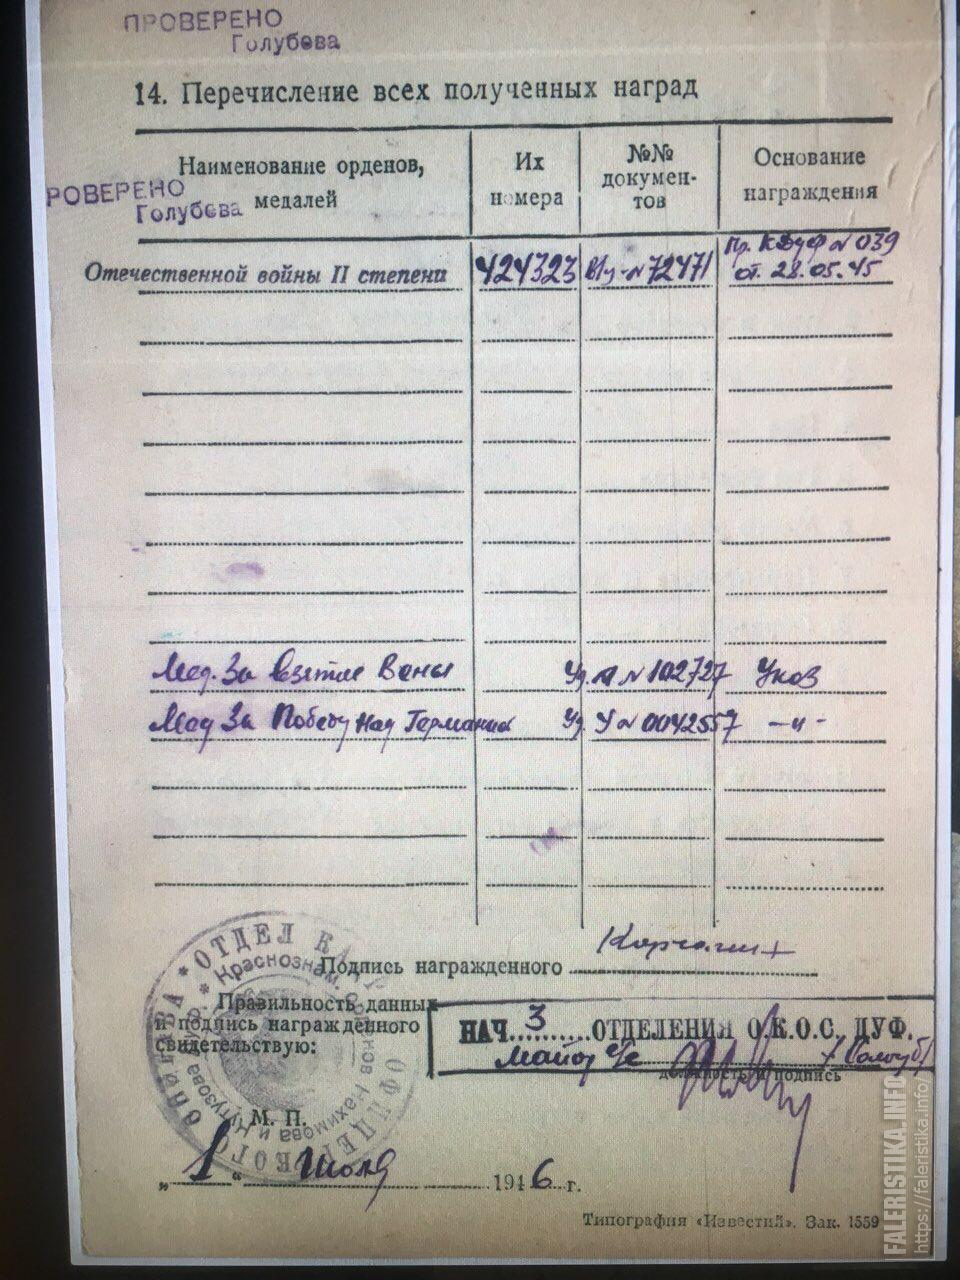 ПРОВЕРЕНО
Голубева
14. Перечисление всех полученных наград
Наименование орденов, медалей
Их номера
№№ докумен-тов
Основание награждения
РОВЕРЕНО
Голубева
Отечественной войны II степени 424323 № 72471 Пр. КДуф № 039
от 28.05.45
Мед. За взятие Вены Уд. А № 102727 Указ
Мед За Победу над Германией Уд. У № 0042557 -"-
Подпись награжденного
Правильность данных
и подпись награжденного
свидетельствую:
НАЧ. 3 ОТДЕЛЕНИЯ О.К.О.С. ДУФ.
Майор а/с
должность и подпись
ОТДЕЛ
Краснознам.
Нахимова и Кутузова
М. П.
„1“ Июля 1946 г.
Типография «Известий». Зак. 1559
FALERISTIKA.INFO
https://faleristika.info